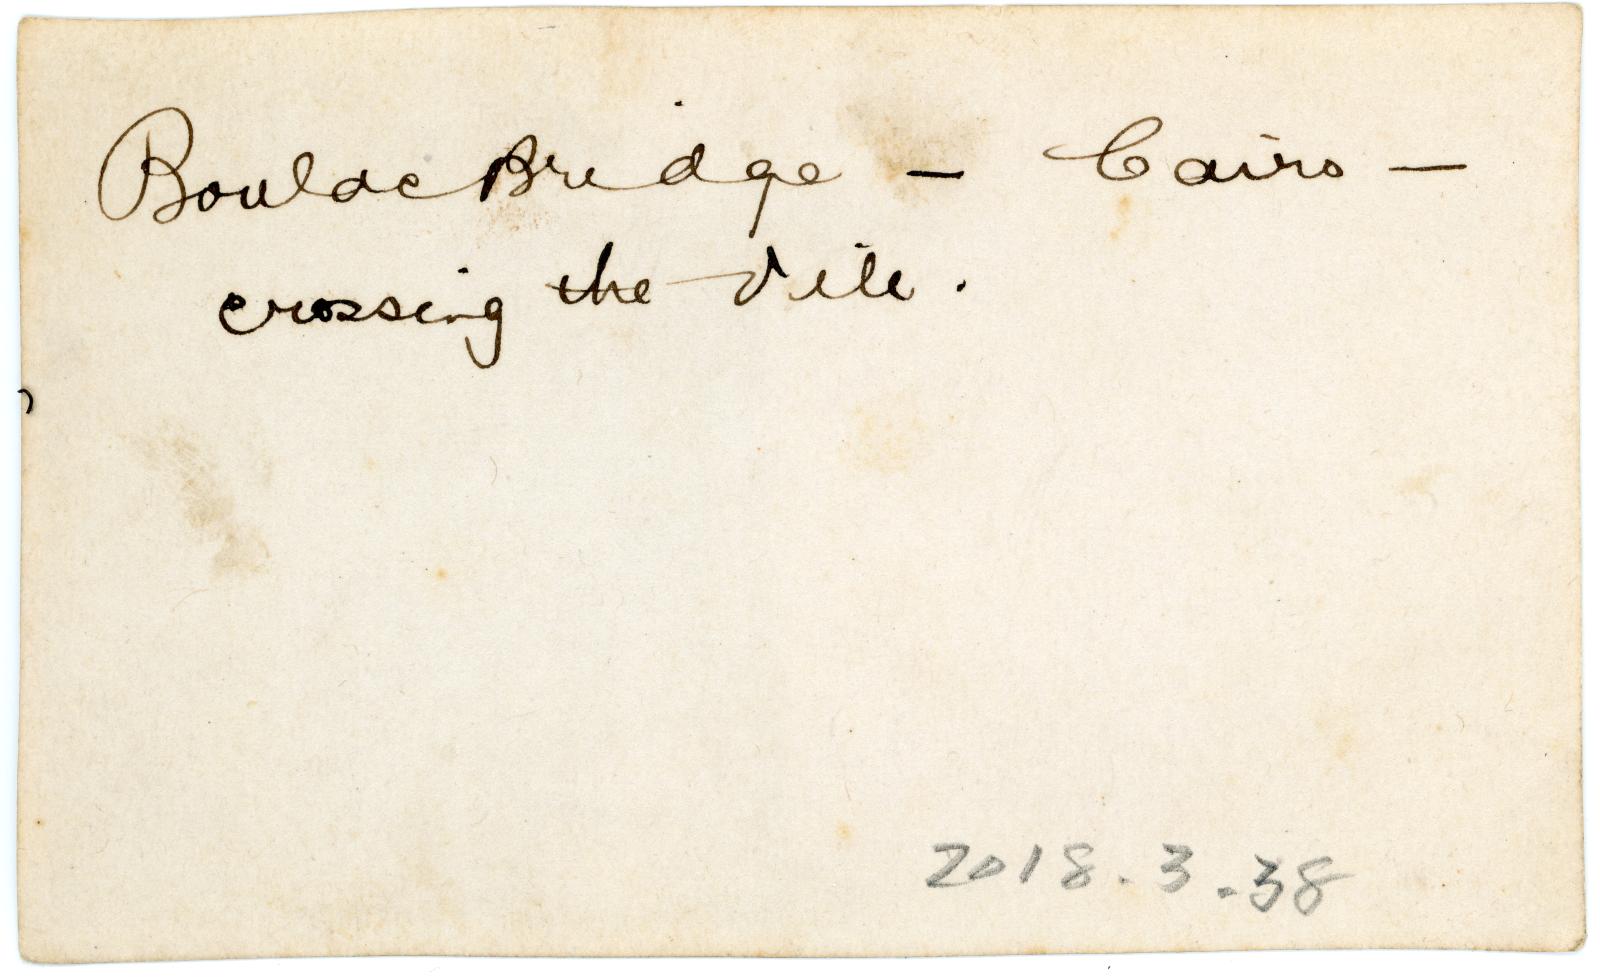 Boulac Bridge — Cairo —
crossing the Nile.
2018.3.38